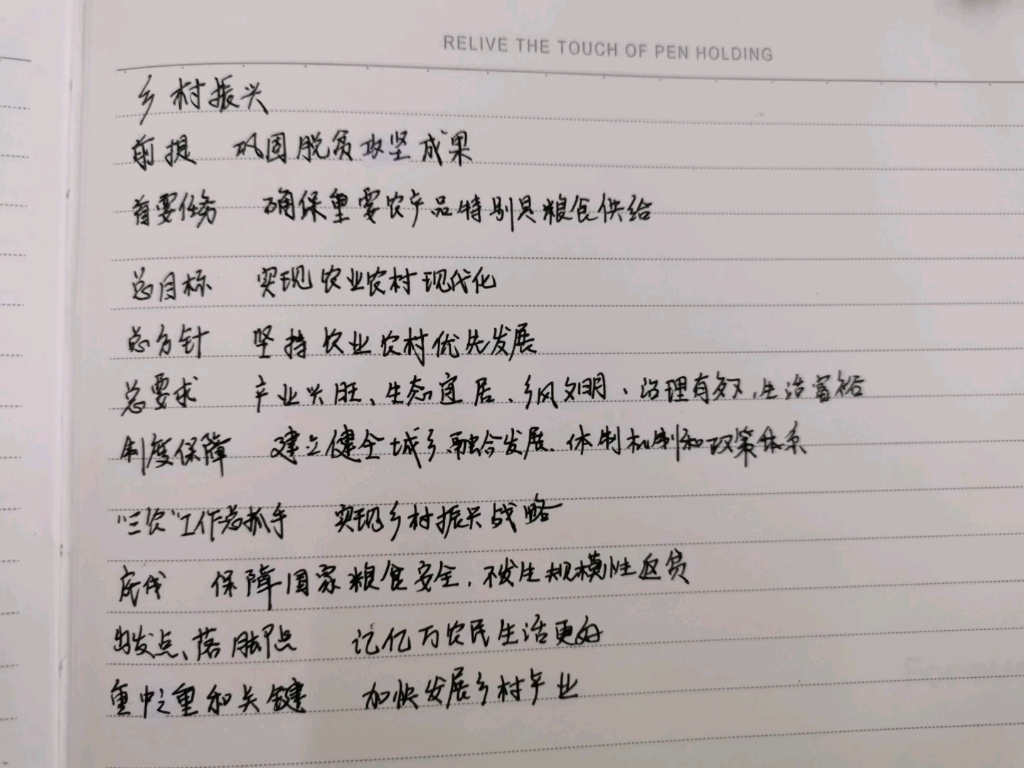 RELIVE THE TOUCH OF PEN HOLDING
乡村振兴
前提 巩固脱贫攻坚成果
首要任务 确保重要农产品特别是粮食供给
总目标 实现农业农村现代化
总方针 坚持农业农村优先发展
总要求 产业兴旺、生态宜居、乡风文明、治理有效,生活富裕
制度保障 建立健全城乡融合发展、体制机制和政策体系
"三农"工作总抓手 实现乡村振兴战略
底线 保障国家粮食安全,不发生规模性返贫
出发点、落脚点 让亿万农民生活更好
重中之重和关键 加快发展乡村产业